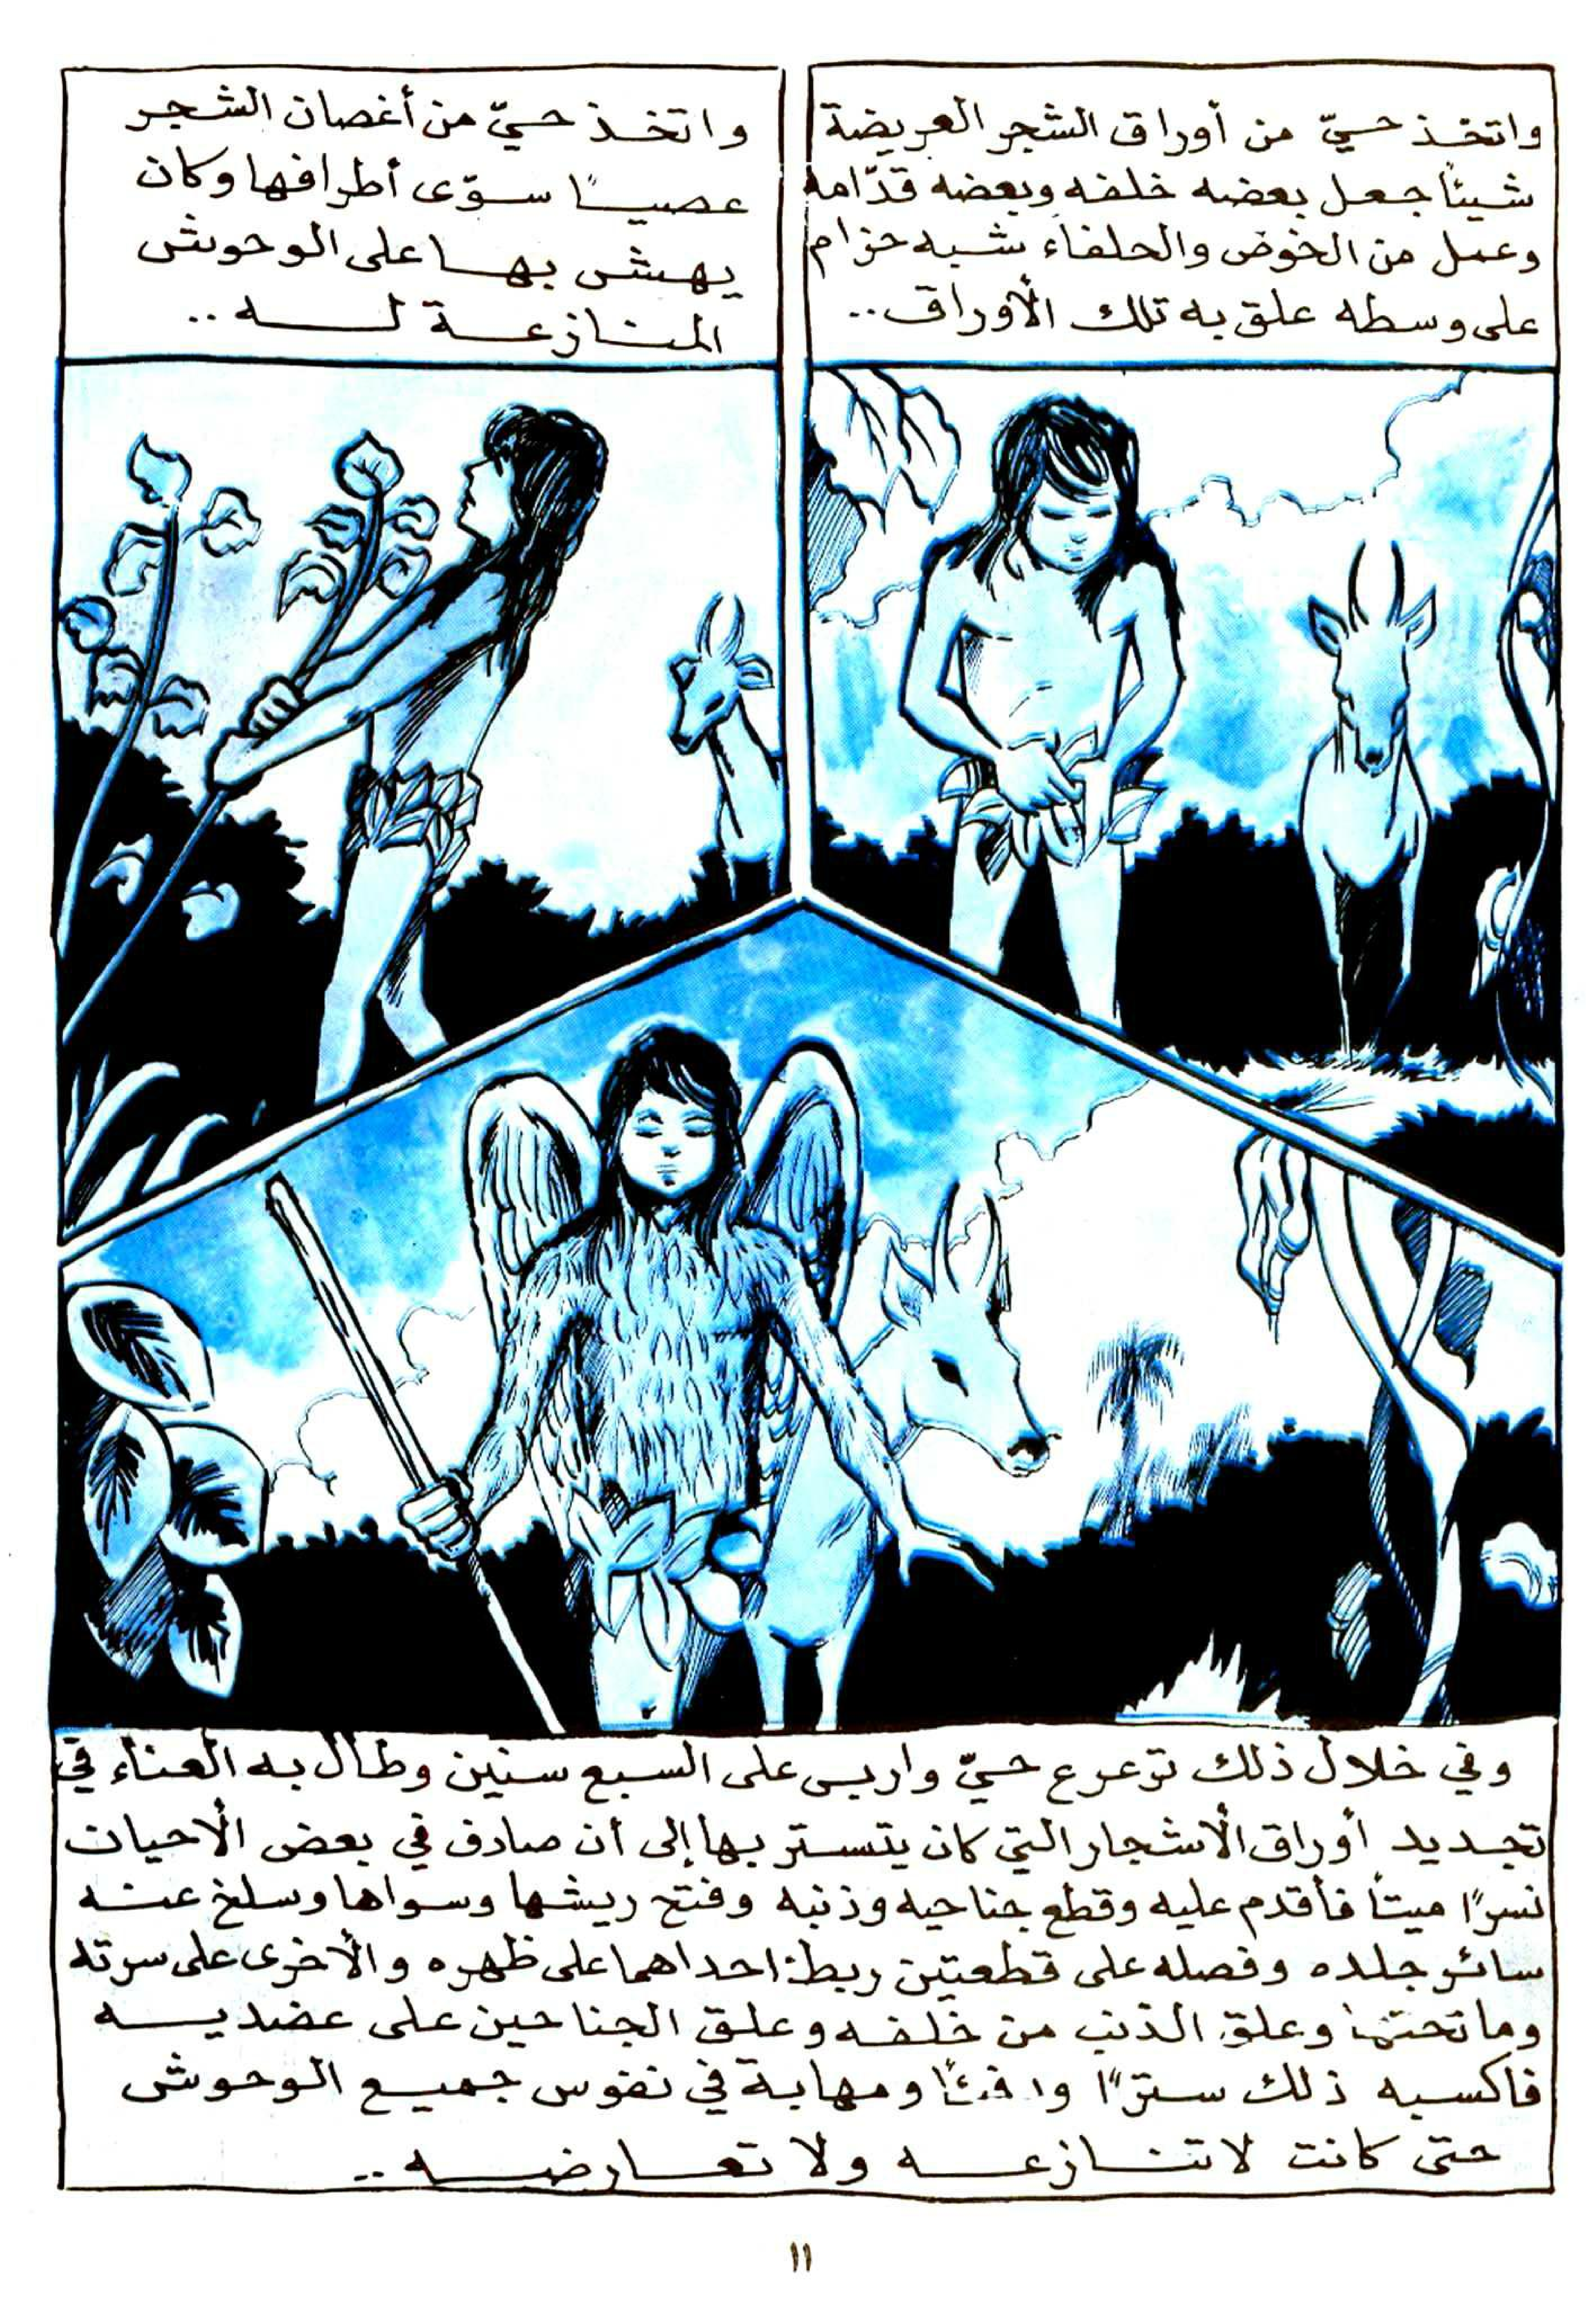 واتخذ حيّ من أوراق الشجر العريضة
شيئاً جعل بعضه خلفه وبعضه قدّامه
وعمل من الخوص والحلفاء شبه حزام
على وسطه علق به تلك الأوراق..
واتخذ حيّ من أغصان الشجر
عصيـــاً سوّى أطرافها وكان
يهش بهـا على الوحوش
المنازعـة لـــه ..
وفي خلال ذلك ترعرع حيّ واربى على السبع سنين وطال به العناء في
تجديد أوراق الأشجار التي كان يتستر بها إلى أن صادف في بعض الأحيان
نسراً ميتاً فأقدم عليه وقطع جناحيه وذنبه وفتح ريشها وسواها وسلخ عنه
سائر جلده وفصله على قطعتين ربط احداهما على ظهره والأخرى على سرته
وما تحتها وعلق الذنب من خلفه وعلق الجناحين على عضديه
فاكسبه ذلك ستراً ودفئاً ومهابة في نفوس جميع الوحوش
حتى كانت لا تنازعـــه ولا تعـارضـــه ..
١١